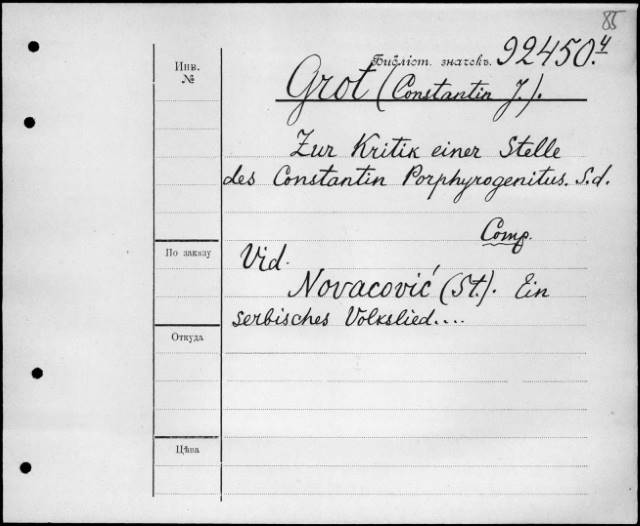 85
Библіот. значекъ. 92450.4
Инв.
№
Grot (Constantin J.).
Zur Kritik einer Stelle
des Constantin Porphyrogenitus. S.d.
Comp.
По заказу
Vid.
Novacović (St.). Ein
serbisches Volkslied....
Откуда
Цѣна